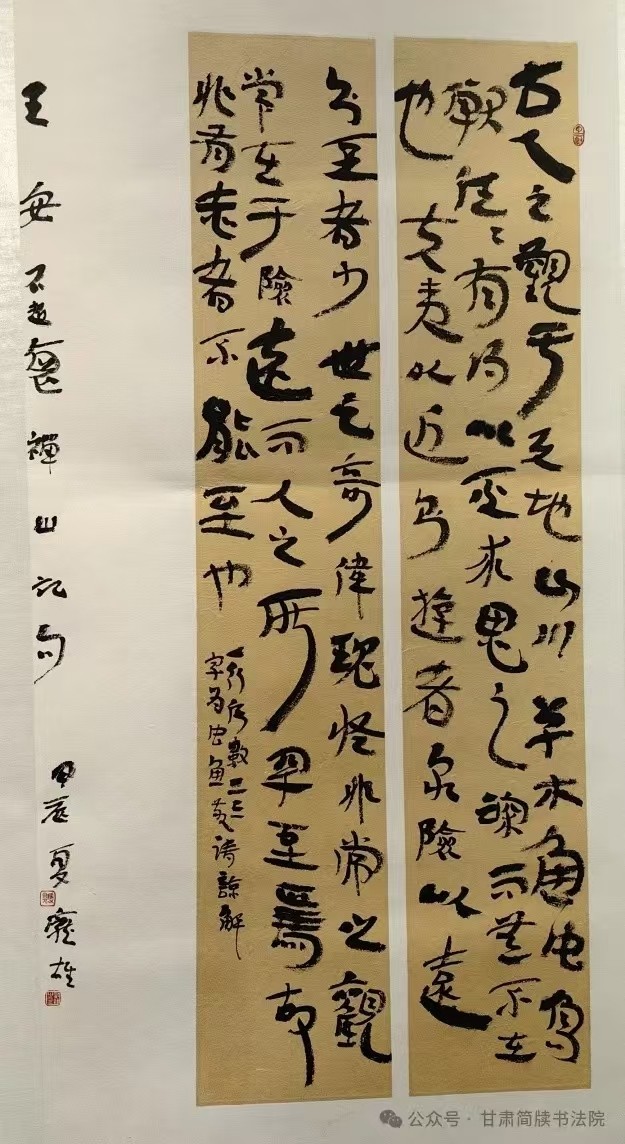 古人之觀于天地山川草木魚虫鳥
獸往〻有得以其求思之深而無不在
也夫夷以近則遊者眾險以遠
則至者少世之奇偉瑰怪非常之觀
常在于險遠而人之所罕至焉故
非有志者不能至也
一行底數二三
字為虫魚 請諒解
王安石遊褒禪山記句 甲辰夏 雄
公众号·甘肃简牍书法院